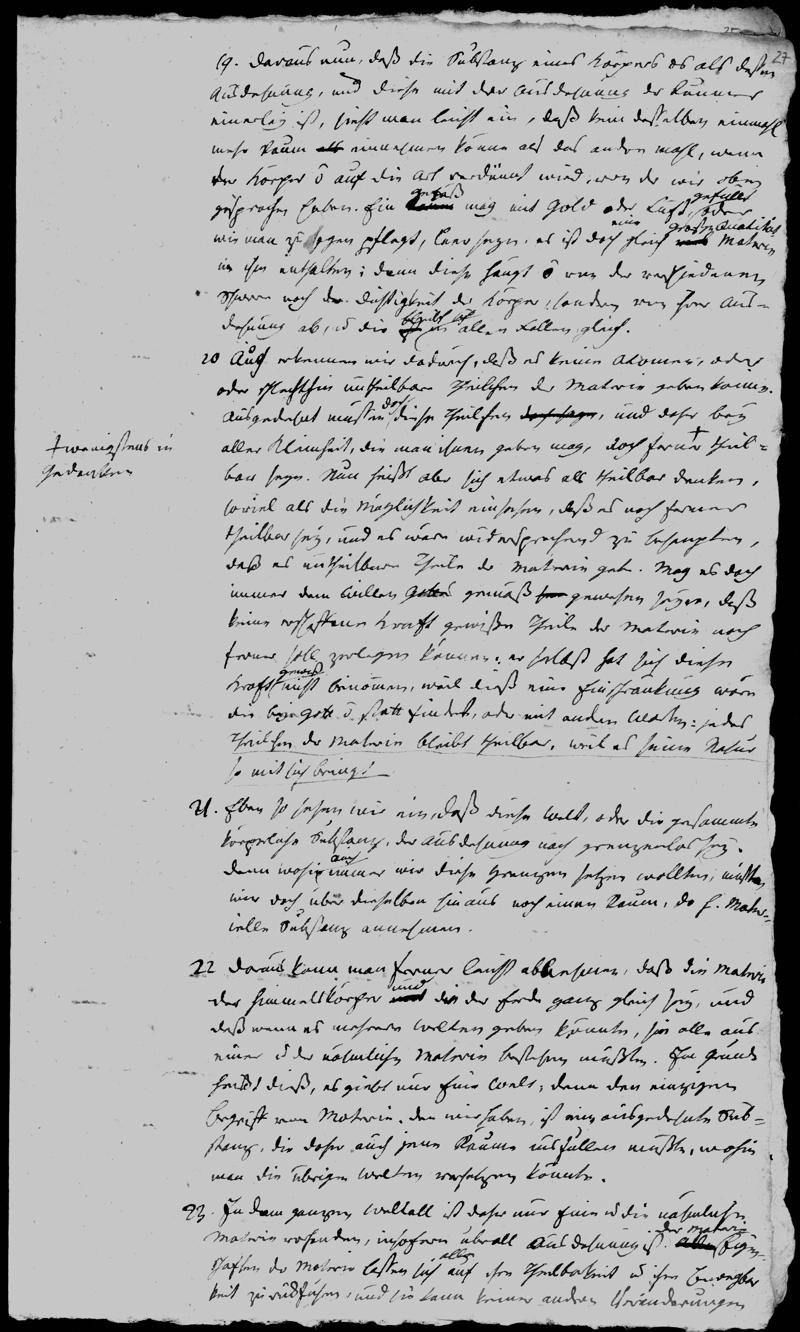 27
19. Daraus nun, daß die Substanz eines Körpers es als dessen
Ausdehnung, und diese mit der Ausdehnung des Raumes
einerley ist, sieht man leicht ein, daß kein desselben einmahl
mehr Raum einnehmen könne als das andere mahl, wenn
der Körper ō auf die Art verdünnt wird, von der wir oben
gesprochen haben. Ein Gefäß mag mit Gold oder Luft gefüllt, oder
wie man zu sagen pflegt, leer seyn, es ist doch gleich eine große Quantität Materie
in ihm enthalten; denn diese hängt ō von der verschiedenen
Schwere noch der Dichtigkeit der Körper, sondern von ihrer Aus=
dehnung ab, u die bleibt in allen Fällen gleich.
20 Auch erkennen wir dadurch, daß es keine Atomen, oder
oder schlechthin untheilbare Theilchen der Materie geben könne.
Ausgedehnt müssen doch diese Theilchen, und daher bey
aller Kleinheit, die man ihnen geben mag, doch ferner + theil=
+ wenigstens in
Gedanken
bar seyn. Nun heißt aber sich etwas als theilbar denken,
soviel als die Möglichkeit einsehen, daß es noch ferner
theilbar sey, und es wäre widersprechend zu behaupten,
daß es untheilbare Theile der Materie gebe. Mag es doch
immer dem Willen Gottes gemäß gewesen seyn, daß
keine erschaffene Kraft gewisse Theile der Materie noch
ferner soll zerlegen können; er selbst hat sich diese
Kraft gewiß nicht benommen, weil dieß eine Einschränkung wäre
die bey Gott ō statt findet, oder mit andern Worten: jedes
Theilchen der Materie bleibt theilbar, weil es seine Natur
so mit sich bringt.
21. Eben so sehen wir ein, daß diese Welt, oder die gesammte
körperliche Substanz, der Ausdehnung nach grenzenlos sey.
Denn wohin auch immer wir diese Grenzen setzen wollten, müßten
wir doch über dieselben hinaus noch einen Raum, d. h. mate=
rielle Substanz annehmen.
22 Daraus kann man ferner leicht abnehmen, daß die Materie
der Himmelskörper und die der Erde ganz gleich sey, und
daß wenn es mehrere Welten geben könnte, sie alle aus
einer u der nähmlichen Materie bestehen müßten. Im Grunde
heißt dieß, es giebt nur Eine Welt; denn den einzigen
Begriff von Materie, den wir haben, ist eine ausgedehnte Sub=
stanz, die daher auch jene Räume ausfüllen müßte, wohin
man die übrigen Welten versetzen könnte.
23. In dem ganzen Weltall ist daher nur Eine u die nähmliche
Materie vorhanden, insofern überall Ausdehnung ist. der Materie Eigen=
schaften der Materie lassen sich alle auf ihre Theilbarkeit u ihre Beweglich
keit zurückführen, und sie kann keiner andern Veränderungen